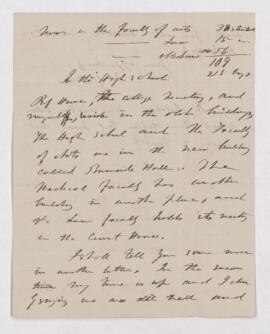 now in the Faculty of arts 38 students
Law 15
Medicine 56
109
In the High school 215 boys
House, the college Secretary, and
myself, reside in the old building.
The High school and the Faculty
of Arts are in the new building
called Burnside Hall. The
Medical Faculty has another
building in another place, and
the Law faculty holds its meetings
in the Court House.
I shall tell you some more
in another letter. In the mean
time my time is up and I when
we are all well and